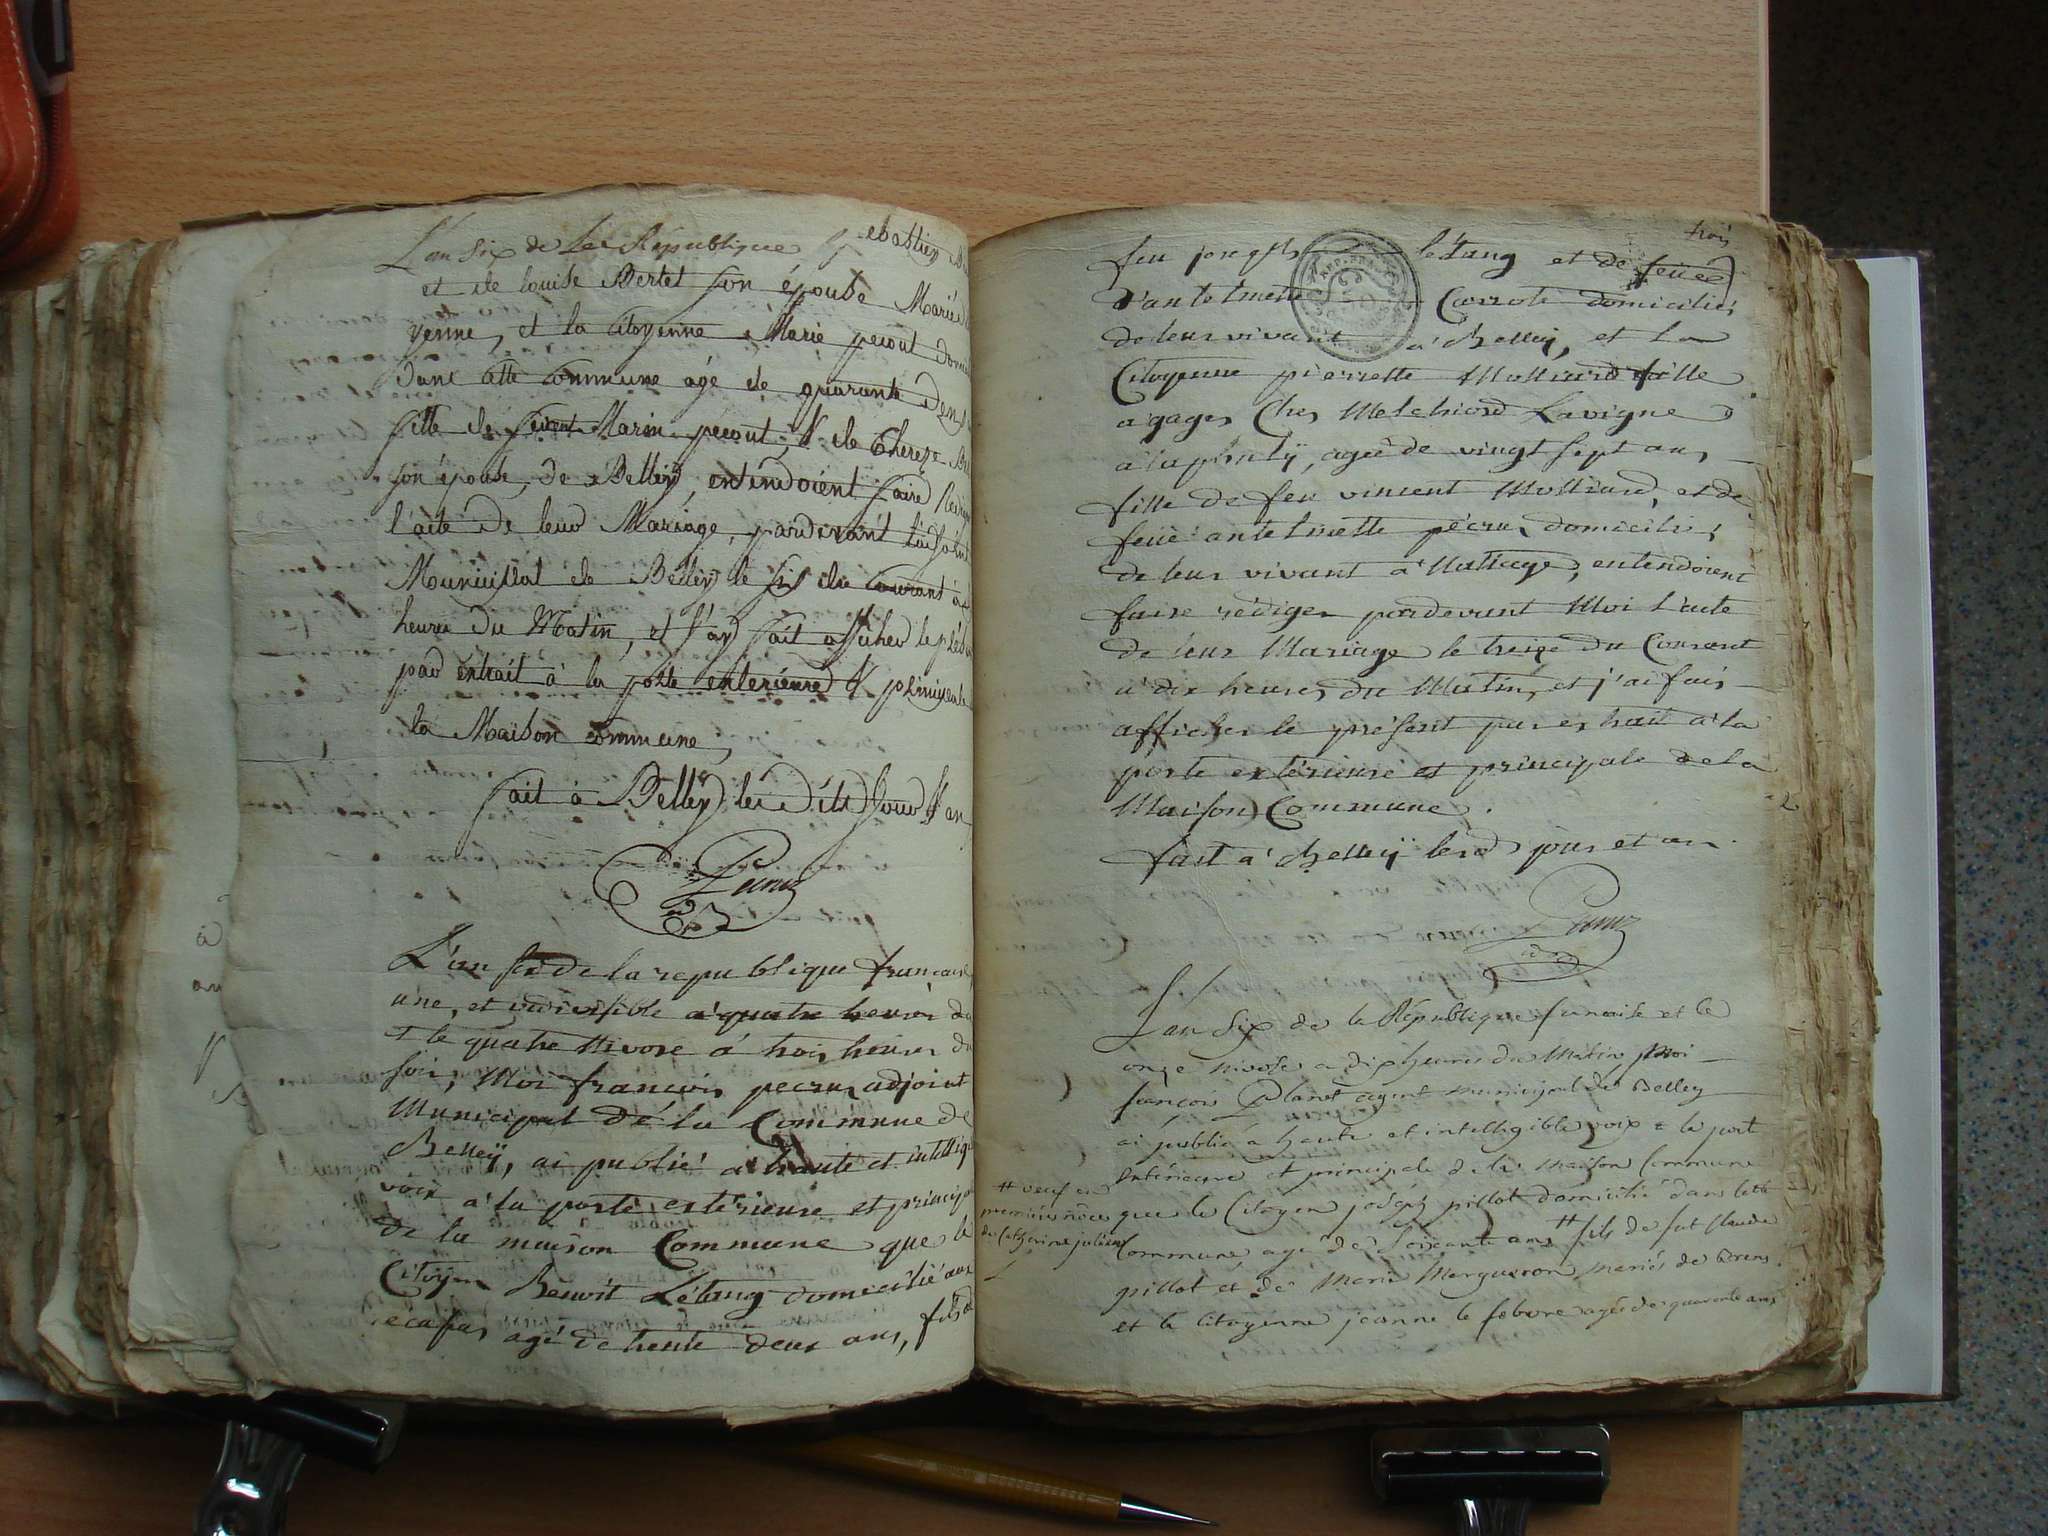 L'an six de la République
ebastien
et de louise Bertet son épouse Mariés
yenne, et la citoyenne Marie pecout
dans cette commune agé de quarante deux
fille de Marin pecout, & de Thereze
son épouse, de Belley, entendoient faire
l'acte de leur Mariage, pardevant l'adjoint
Municipal de Belley le six du courant à
heure du Matin, et j'ay fait afficher le
par extrait à la porte exterieure &
la Maison commune,
fait à Belley les dits jour & an
Pecruz
L'an six de la republique francaise
une, et indivisible a quatre heures du
et le quatre Nivose á trois heures du
soir, Moi francois pecruz adjoint
Municipal de la Commune de
Belleÿ, ai publié a haute et intelligi
voix a la porte extérieure et princip
de la maison Commune que le
Citoÿen Benoit Létang domicilié aux
écassaz agé de trente deux ans, fils de
trois
feu joseph létang et de feüe
d'antelmette Carrote domiciliés
de leur vivant a Belleÿ, et la
Citoyenne pierrette Molliard fille
a gages Chez Melchiord Lavigne
agée de vingt sept ans
fille de feu vincent Molliard, et de
feüe antelmette pécruz domiciliés
de leur vivant a Nattage, entendoient
faire rédiger pardevant Moi l'acte
de leur Mariage le treize du Courant
a dix heures du Matin, et j'ai fais
afficher le présent par extrait a la
porte extérieure et principale de la
Maison Commune.
fait a Belleÿ lesd jour et an.
Pecruz
L'an Six de la République francaise et le
onze nivose a dix heures du Matin Moi
francois Planet agent municipal de Belley
ai publié a haute et intelligible voix a la porte
Extérieure et principale de la Maison Commune
# veuf en
premières nôces
de Catherine julien
que le Citoyen joseph pillot domicilié dans cette
Commune agé de Soixante ans # fils de fut Claude
pillot et de Marie Margueron mariés de
et la Citoyenne jeanne le febvre agée de quarante ans